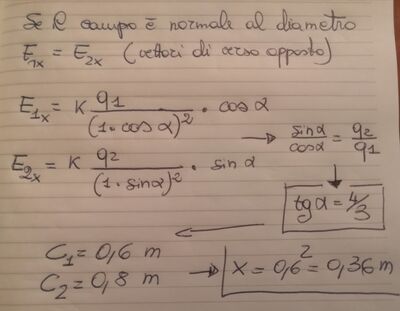 Se il campo è normale al diametro
E₁ₓ = E₂ₓ (vettori di verso opposto)
E₁ₓ = K q₁/(1·cos α)² · cos α
→ sin α/cos α = q₂/q₁
E₂ₓ = K q₂/(1·sin α)² · sin α
↓
tg α = 4/3
←
C₁ = 0,6 m
C₂ = 0,8 m → x = 0,6² = 0,36 m